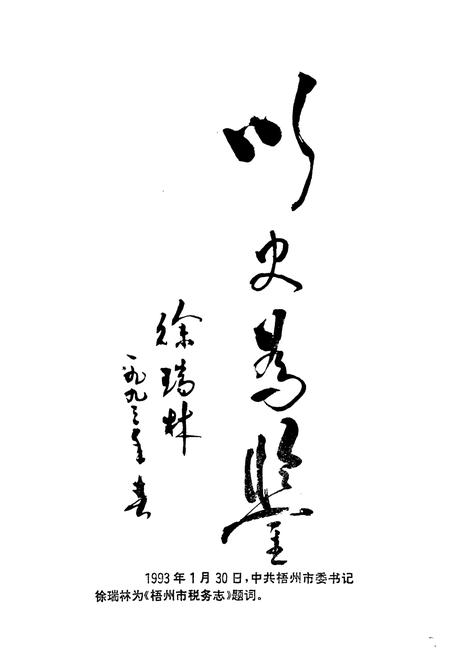 以史为鉴
徐瑞林
一九九三年春
1993年1月30日，中共梧州市委书记
徐瑞林为《梧州市税务志》题词。